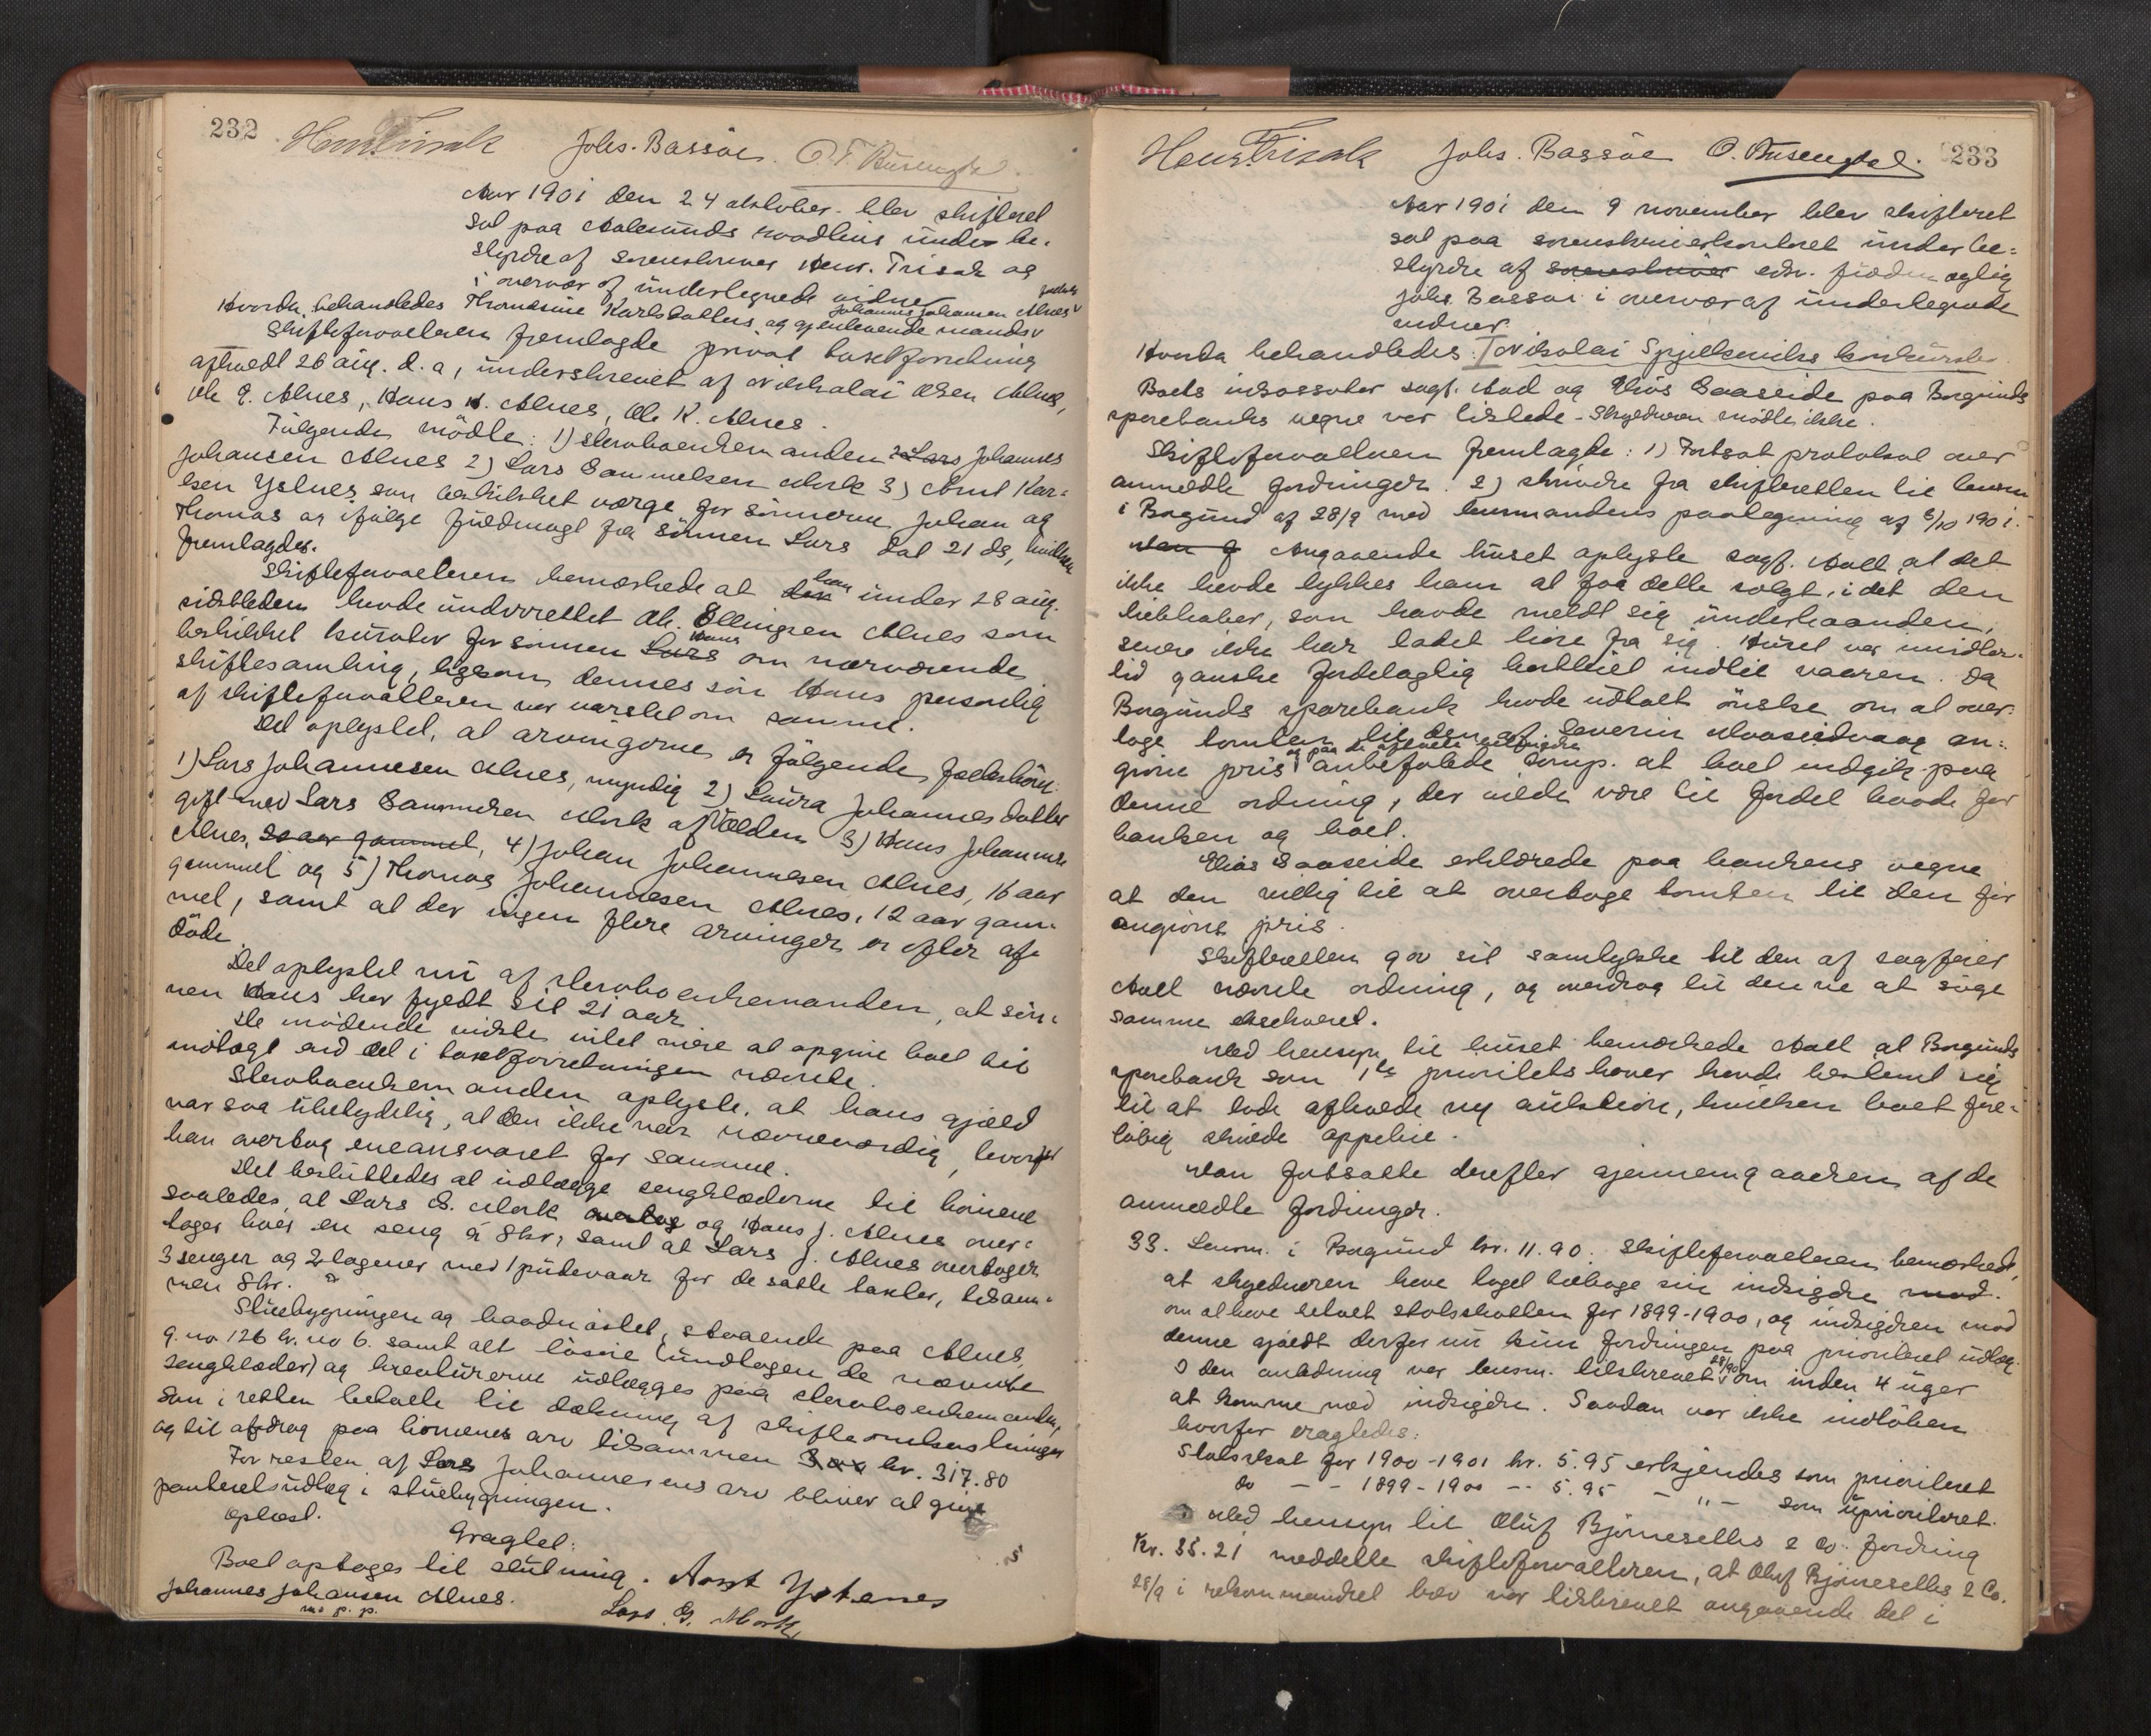 232
Joh's. Bassöe.
Aar 1901 den 24 oktober blev skifteret
sat paa Aalesunds raadhus under be-
styrelse af sorenskriver Henr. Frisak og
i overvær af undertegnede vidner
Hvorda behandledes Thomasine Karlsdatters og gjenlevende mands
Johannes Johansen Alnes
Skifteforvalteren fremlagde privat taxtforretning
afholdt 26 aug. d. a, underskrevet af Nikolai Olsen Alnes,
Ole J. Alnes, Hans K. Alnes, Ole K. Alnes.
Følgende mödte: 1) Stervboenkemanden Lars Johannes
Johansen Alnes 2) Lars Sammelsen Mork 3) Arnt Kar-
lsen Ystnes som beskikket værge for sönnerne Johan og
Thomas og ifølge fuldmagt fra sönnen Lars dat 21 ds, hvilken
fremlagdes.
Skifteforvalteren bemærkede at den han under 28 aug.
sidstleden havde underrettet Ole Ellingsen Alnes som
beskikket kurator for sönnen Lars Hans om nærværende
skiftesamling, ligesom dennes sön Hans personlig
af skifteforvalteren var varslet om samme.
Det oplystes, at arvingerne er følgende fællesbörn:
1) Lars Johannesen Alnes, myndig 2) Laura Johannesdatter
gift med Lars Sammelsen Mork af Volden 3) Hans Johannesen
Alnes, 20 aar gammel, 4) Johan Johannesen Alnes, 16 aar
gammel og 5) Thomas Johannesen Alnes, 12 aar gam-
mel, samt at der ingen flere arvinger er efter af-
döde.
Det oplystes nu af stervboenkemanden, at sön-
nen Hans har fyldt sit 21 aar
De mödende vidste intet mere at opgive boet til
indtægt end det i taxtforretningen nævnte.
Stervboenkemanden oplyste, at hans gjæld
var saa ubetydelig, at den ikke var nævneværdig, hvorfor
han overtog eneansvaret for samme.
Det besluttedes at udlægge sengklæderne til börnene
saaledes, at Lars S. Mork overtog og Hans J. Alnes over-
tager hver en seng á 8 kr, samt at Lars J. Alnes overtager
3 senger og 2 lagener med 1 pudevaar for de satte takster, tilsam-
men 8 kr.
Stuebygningen og baadnöstet, staaende paa Alnes,
g. no 126 br. no 6. samt alt lösöre (undtagen de nævnte
sengklæder) og kreaturerne udlægges paa stervboenkemanden,
som i retten betalte til dækning af skifteomkostninger
og til afdrag paa börnenes arv tilsammen kr. 317.80
For resten af Lars Johannesens arv bliver at give
panteretsudlæg i stuebygningen.
Oplæst.
Eragtet:
Boet optages til slutning. Arnt Ystenes
Johannes Johansen Alnes. Lars S. Mork,
m. p. p.
Henr Frisak Joh's. Bassöe 233
Aar 1901 den 9 november blev skifteret
sat paa sorenskriverkontoret under be-
styrelse af sorenskriver edsv. fuldmægtig
Johs. Bassöe i overvær af undertegnede
vidner.
Hvorda behandledes: I Nikolai Spjelkeviks konkursbo
Boets inkassator sagf. Aall og Elias Gaaseide paa Borgunds
sparebanks vegne var tilstede. Skyldneren mödte ikke.
Skifteforvalteren fremlagde: 1) Fortsat protokol over
anmeldte fordringer. 2) skrivelse fra skifteretten til lensm
i Borgund af 28/9 med lensmandens paategning af 5/10 1901.
Man g Angaaende huset oplyste sagf. Aall at det
ikke havde lykkes ham at faa dette solgt, idet den
liebhaber, som havde meldt sig underhaanden,
senere ikke har ladet höre fra sig. Huset var imidler-
tid ganske fordelagtig bortleiet indtil vaaren. Da
Borgunds sparebank havde udtalt önske om at over-
tage tomten til den af Severin Maaseidvaag an-
givne pris og paa de opgivne vilkaar anbefalede komp. at boet indgik paa
denne ordning, der vilde være til fordel baade for
banken og boet.
Elias Gaaseide erklærede paa bankens vegne
at den villig til at overtage tomten til den för
angivne pris.
Skifteretten gav sit samtykke til den af sagförer
Aall nævnte ordning, og overdrog til denne at söge
samme eksekveret.
Med hensyn til huset bemærkede Aall at Borgunds
sparebank som 1ste prioritetshaver havde bestemt sig
til at lade afholde ny auktion, hvilken boet fore-
löbig skulde oppebie.
Man fortsatte derefter gjennemgaaelsen af de
anmeldte fordringer.
33. Lensm. i Borgund kr. 11.90. Skifteforvalteren bemærkede,
at skyldneren have taget tilbage sin indsigelse mod.
om at have betalt statsskatten for 1899-1900, og indsigelsen mod
denne gjaldt derfor nu kun fordringen paa prioriteret udlæg.
I den anledning var lensm. tilskrevet 28/9 om inden 4 uger
at komme med indsigelse. Saadan var ikke indlöben
hvorfor eragtedes:
Statsskat for 1900-1901 kr. 5.95 erkjendes som prioriteret
do - - 1899-1900 - - 5.95 - " - som uprioriteret.
Med hensyn til Oluf Bjørneseths & Co. fordring
Kr. 35.21 meddelte skifteforvalteren, at Oluf Bjørneseths & Co.
28/9 i rekommanderet brev var tilskrevet angaaende det i